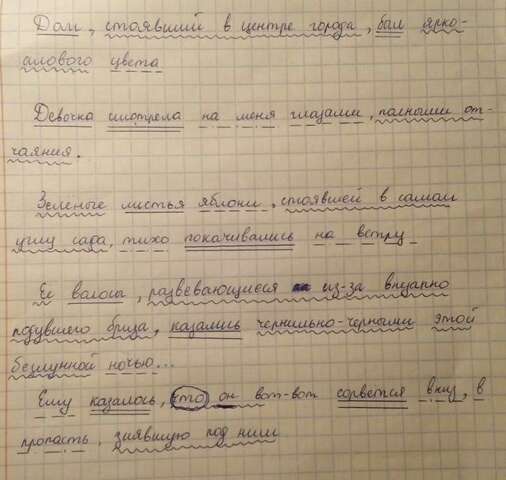 Дом, стоявший в центре города, был ярко-
алового цвета
Девочка смотрела на меня глазами, полными от-
чаяния.
Зеленые листья яблони, стоявшей в самом
углу сада, тихо покачивались на ветру
Ее волосы, развевающиеся из-за внезапно
подувшего бриза, казались чернильно-черными этой
безлунной ночью...
Ему казалось, что он вот-вот сорвется вниз, в
пропасть, зиявшую под ним